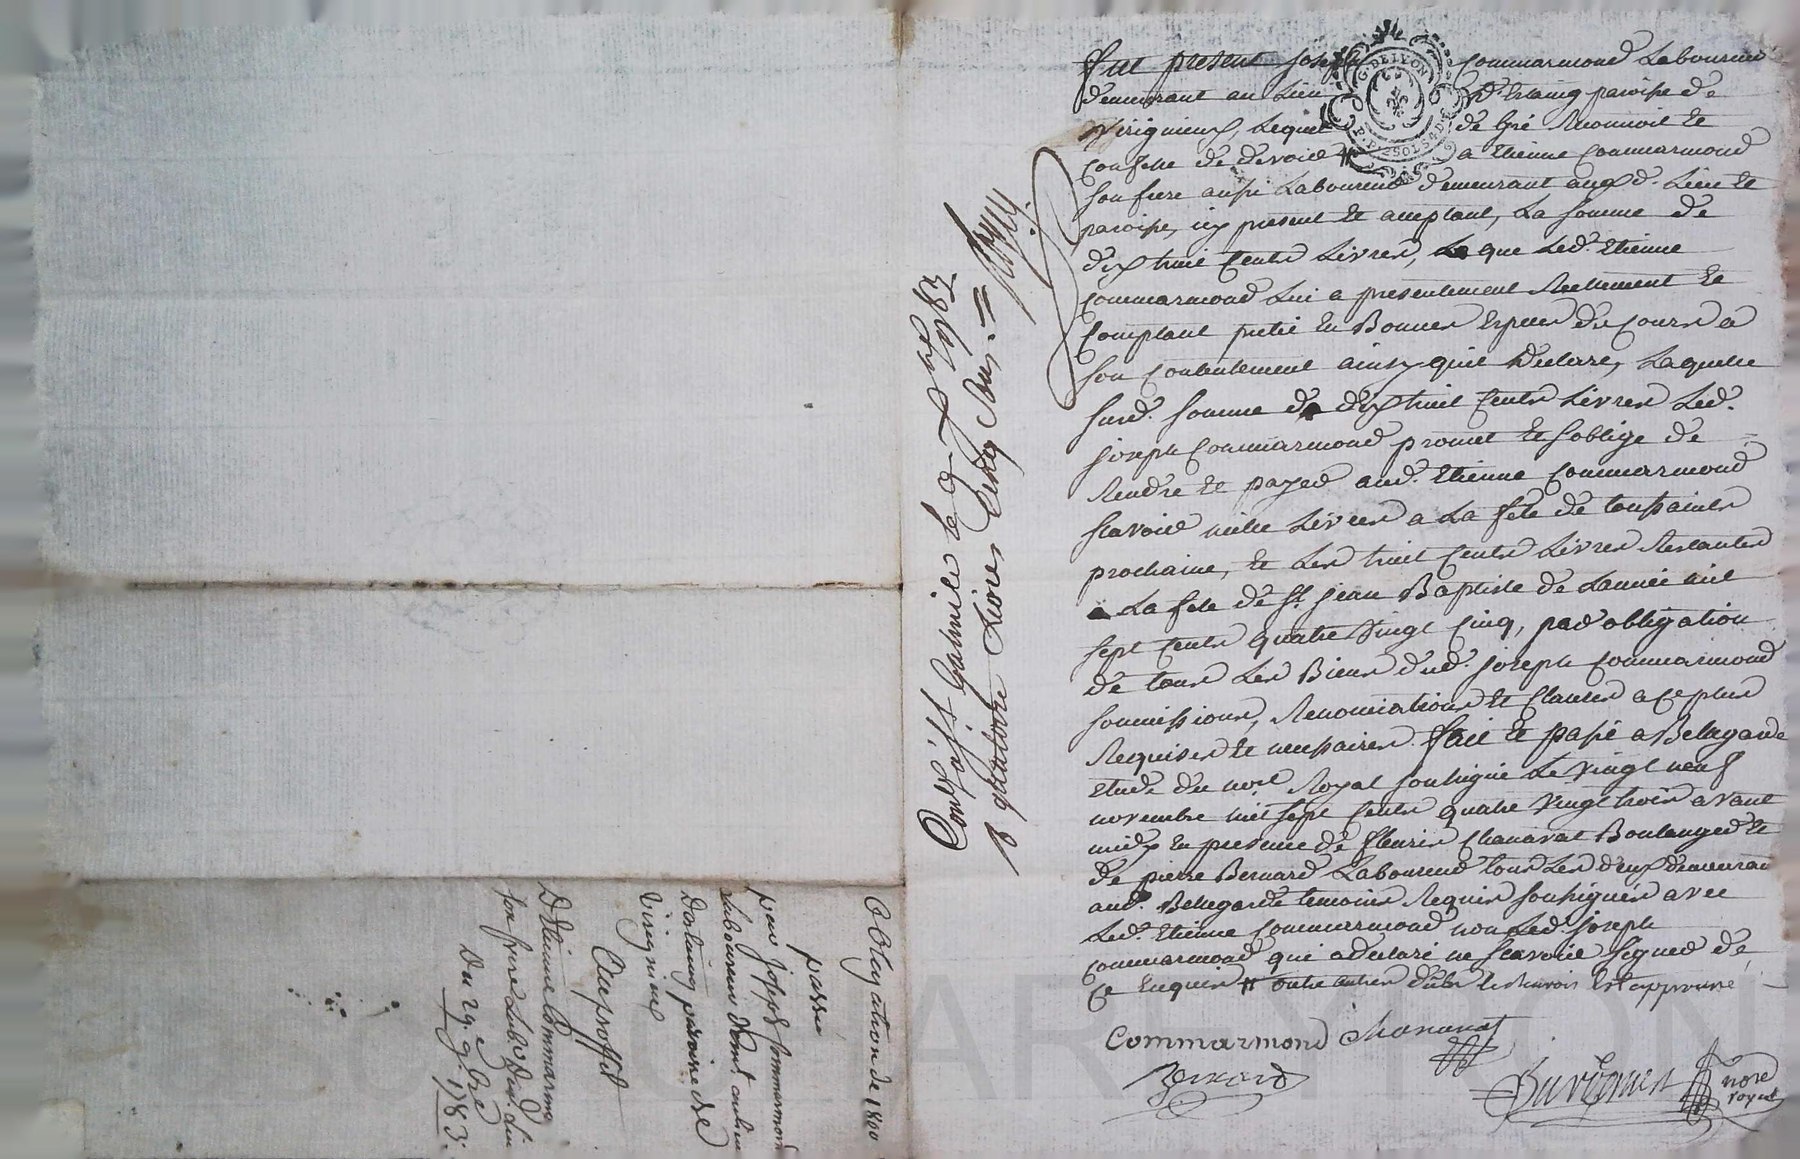 fut present Joseph Commarmond Laboureur
demeurant au Lieu d'Estaing paroisse de
Virignieux, Lequel de gré Reconnoit et
confesse de devoir # a Etienne Commarmond
son frere aussi Laboureur demeurant auxd. Lieu et
paroisse, icy present et acceptant, La somme de
dix huit Cents Livres, que Led. Etienne
Commarmond Lui a presentement Reellement et
comptant preté en Bonnes Especes du Cours a
son contentement ainsy quil Declare, Laquelle
susd. somme de dix huit Cents Livres Led.
joseph Commarmond promet et s'oblige de
Rendre et payer aud. Etienne Commarmond
scavoir mille Livres a La fête de toussaints
prochaine, et Les huit Cents Livres Restantes
a La fete de St. jean Baptiste de Lannée mil
sept Cents quatre Vingt Cinq, par obligation
de tous Les Biens dud. joseph Commarmond
soumissions, Renonciations et Clauses a ce plus
Requises et necessaires. fait et passé a Bellegarde
Etude du nore. Royal soussigné Le Vingt neuf
novembre mil sept Cents quatre Vingt trois avant
midy en presence de fleuris Chanavat Boulanger et
de pierre Bernard Laboureur tous Les deux demeurant
aud. Bellegarde temoins Requis soussignés avec
Led. Etienne Commarmond non Led. joseph
Commarmond qui a declaré ne scavoir signer de
ce Enquis # outre autres dub Est approuvé
Commarmond Chanavat
Bernard
nore
royal
G. DE LYON
Conlé a St Galmier le 9 Xbre 1783
R quatorze Livres Cinq Sous
Obligation de 1800
passée
par joseph Commarmond
Laboureur demt. au lieu
Destaing paroisse de
Virignieu
Au proffit
D'Etienne Commarmond
son frere Labr. dem. dud.
Du 29. 9bre
1783.